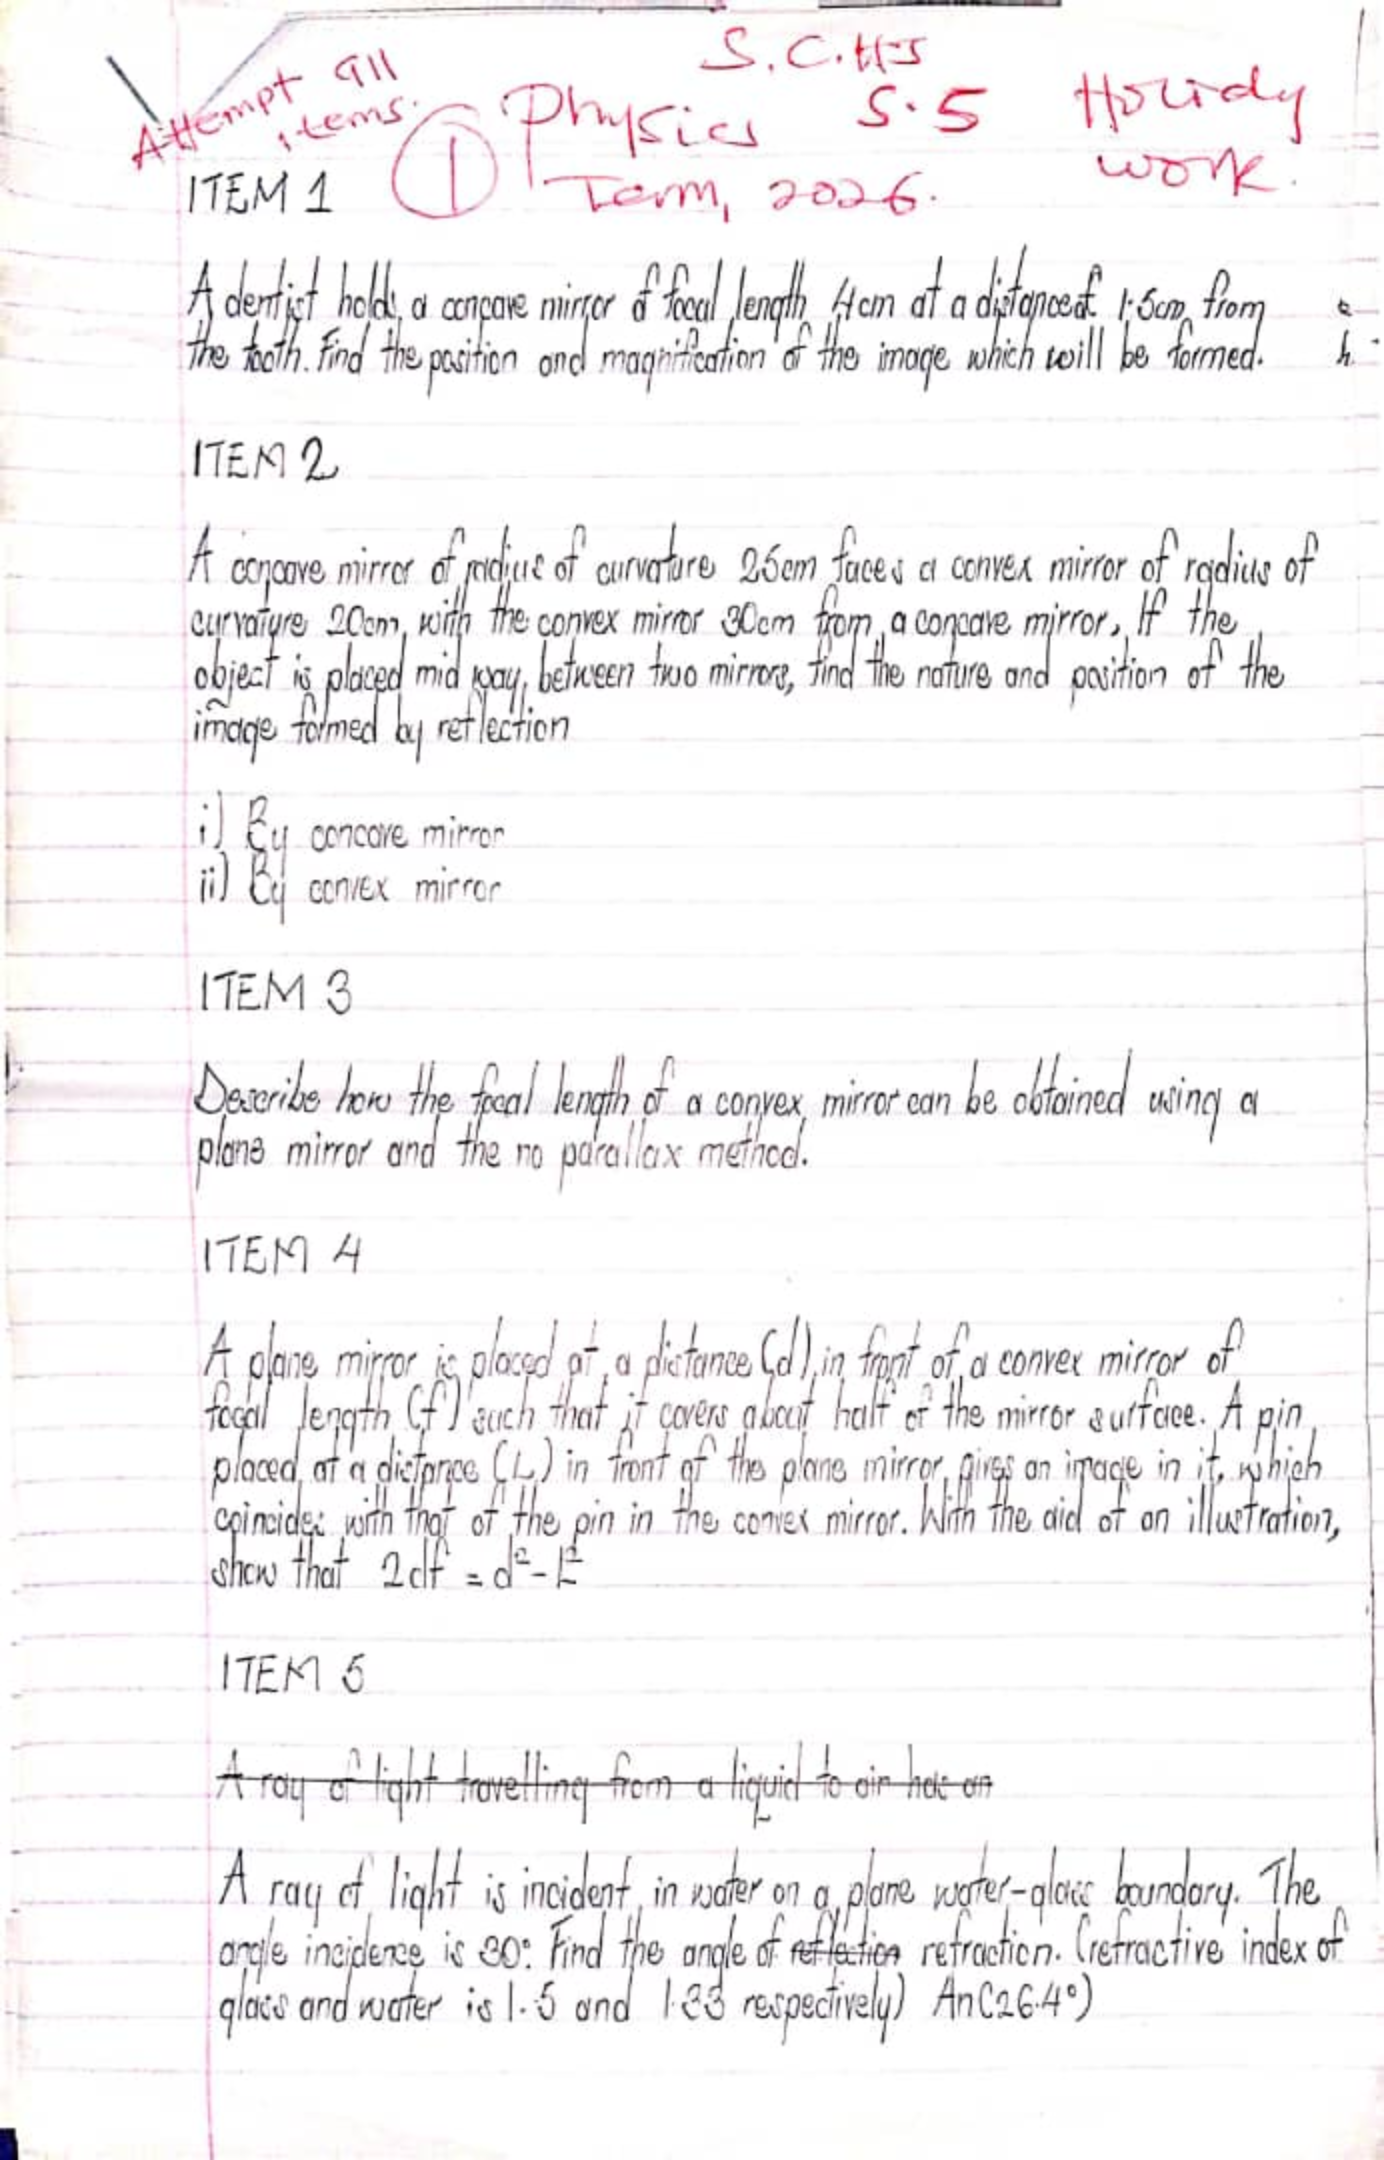 Attempt all
items.
S.C.HS
① Physics S.5 Holidy
work.
Term, 2026.
ITEM 1
A dentist holds a concave mirror of focal length 4cm at a distance of 1.5cm from
the tooth. Find the position and magnification of the image which will be formed.
ITEM 2
A concave mirror of radius of curvature 25cm faces a convex mirror of radius of
curvature 20cm, with the convex mirror 30cm from a concave mirror, If the
object is placed mid way, between two mirrors, find the nature and position of the
image formed by reflection
i) By concave mirror
ii) By convex mirror
ITEM 3
Describe how the focal length of a convex mirror can be obtained using a
plane mirror and the no parallax method.
ITEM 4
A plane mirror is placed at a distance (d) in front of a convex mirror of
focal length (f) such that it covers about half of the mirror surface. A pin
placed at a distance (L) in front of the plane mirror, gives an image in it, which
coincides with that of the pin in the convex mirror. With the aid of an illustration,
show that 2df = d² - L²
ITEM 5
A ray of light travelling from a liquid to air has an
A ray of light is incident in water on a plane water-glass boundary. The
angle incidence is 30°. Find the angle of reflection refraction. (refractive index of
glass and water is 1.5 and 1.33 respectively) An(26.4°)